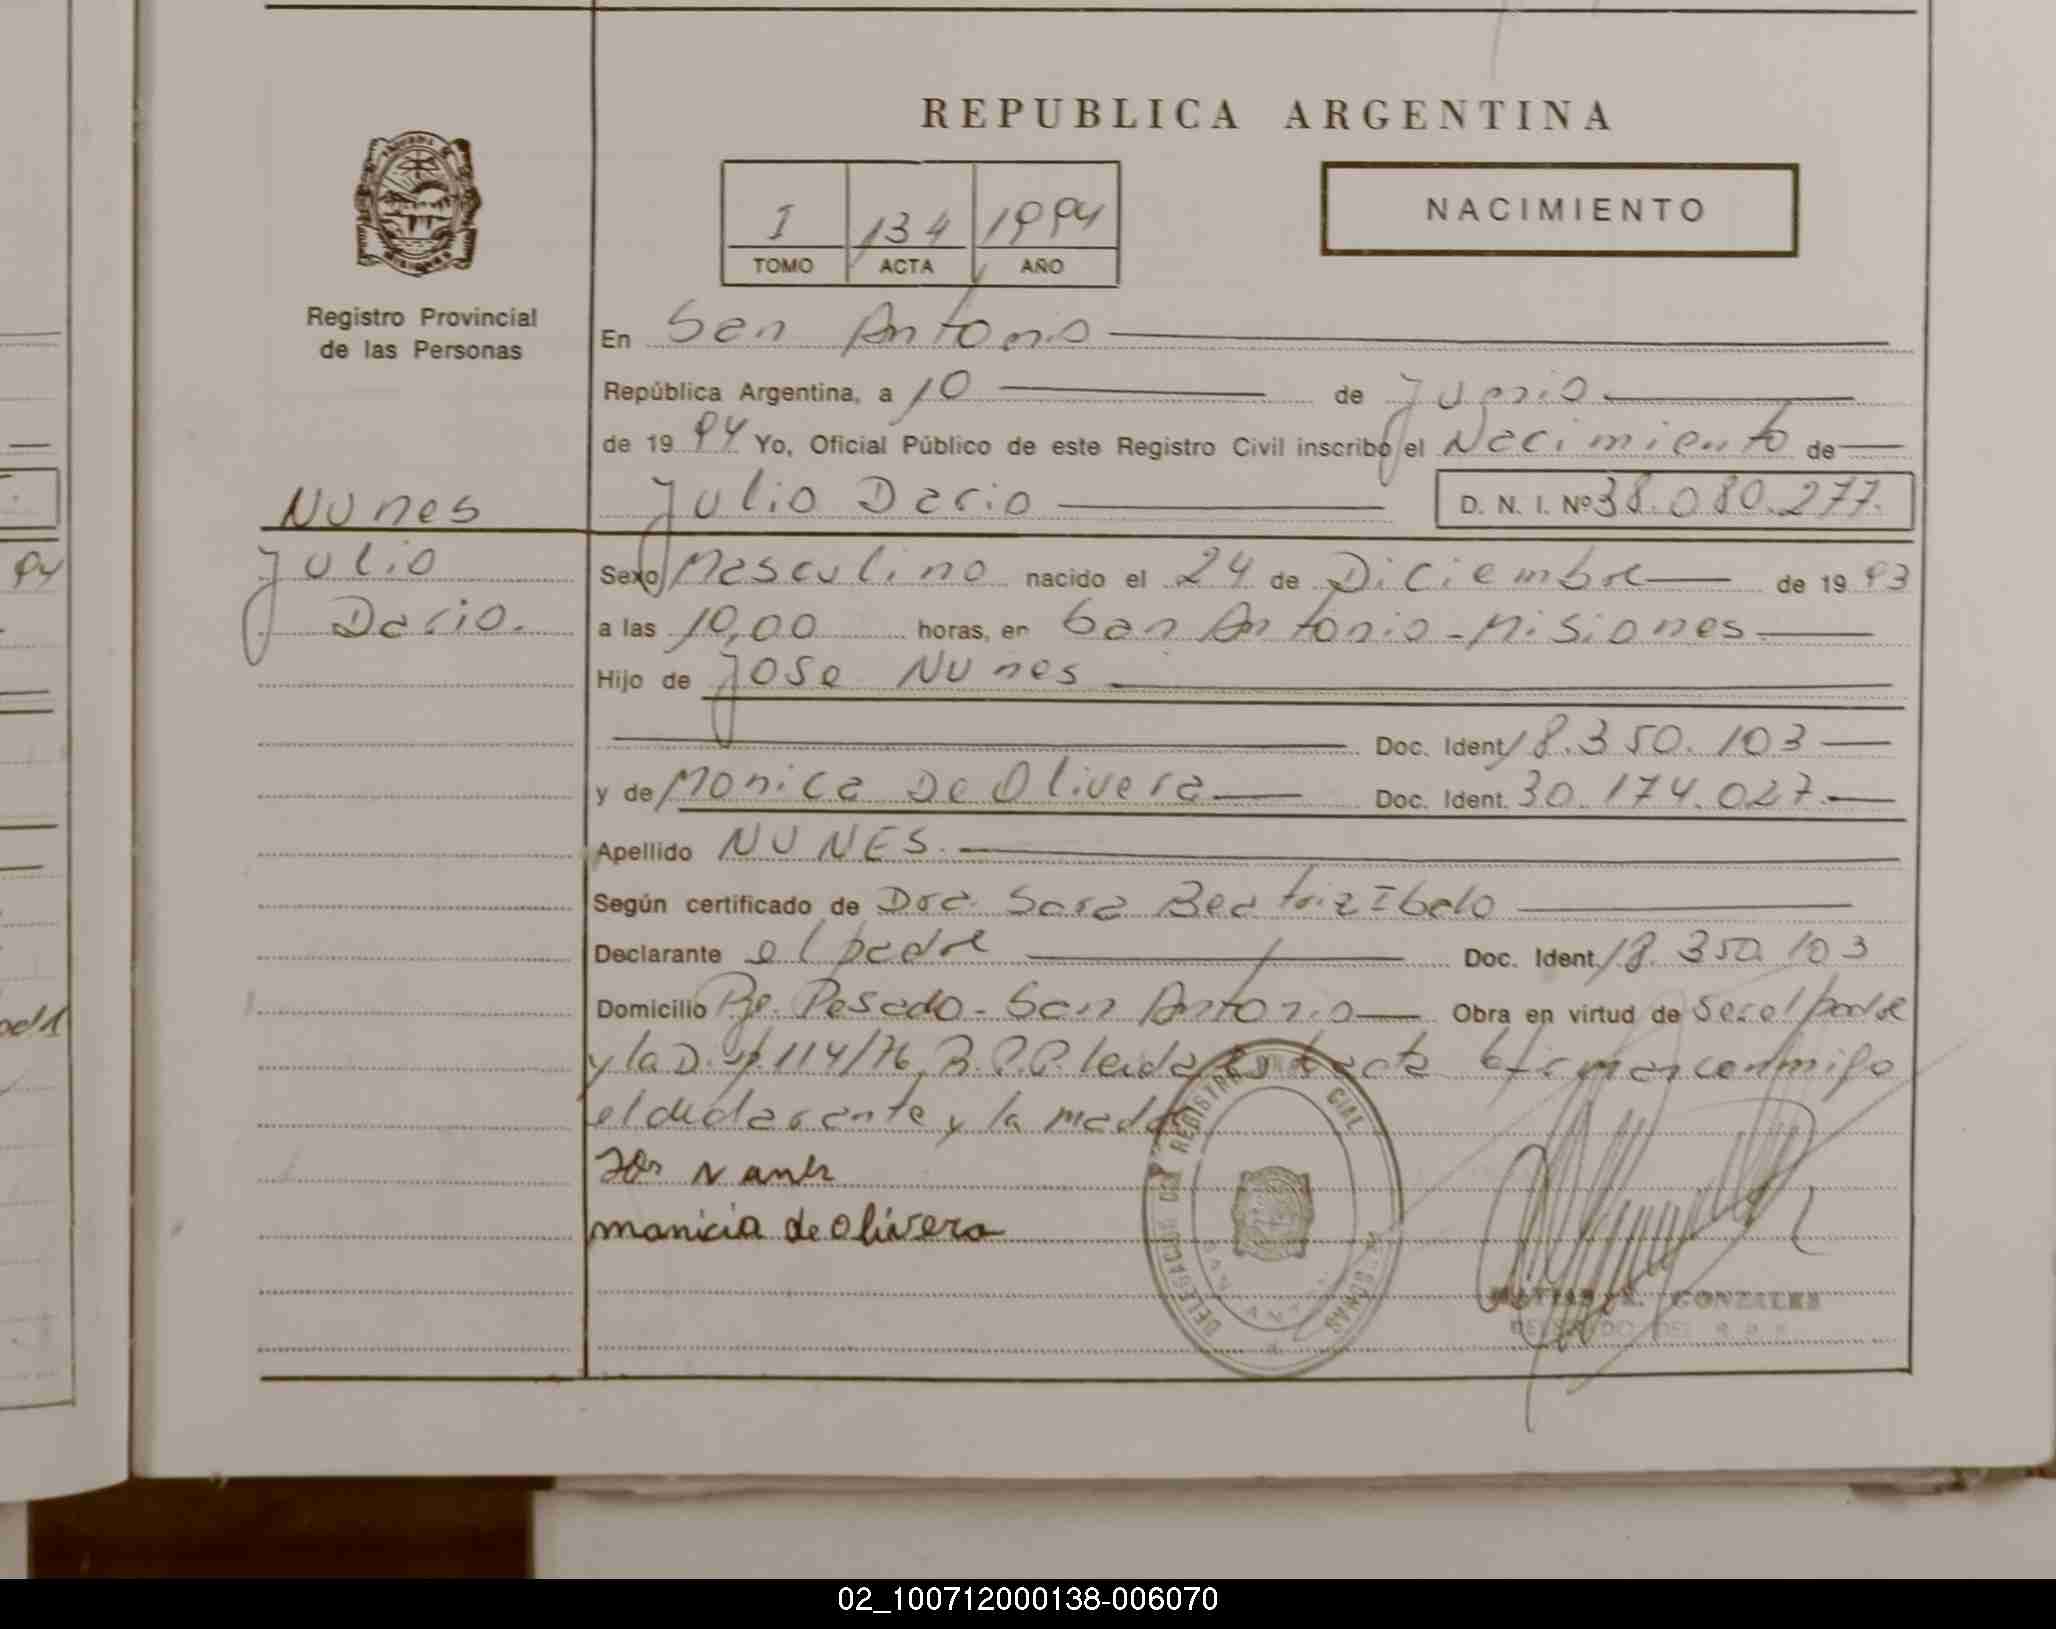 REPUBLICA ARGENTINA
NACIMIENTO
I 134 1994
TOMO ACTA AÑO
Registro Provincial
de las Personas
En San Antonio
República Argentina, a 10 de Junio
de 1994 Yo, Oficial Público de este Registro Civil inscribo el Nacimiento de
Julio Dario D. N. I. Nº 38.080.277.
Nunes
Julio
Dario.
Sexo Masculino nacido el 24 de Diciembre de 1993
a las 10,00 horas, en San Antonio - Misiones
Hijo de Jose Nunes
Doc. Ident. 18.350.103
y de Monica De Olivera Doc. Ident. 30.174.027.
Apellido NUNES.
Según certificado de Dra. Sara Beatriz
Declarante el padre Doc. Ident. 18.350.103
Domicilio Pje. Pesado - San Antonio Obra en virtud de ser el padre
y la D. 114/76 R.P.P. leida acta firman conmigo
el declarante y la madre
manicia de olivera
DELEGACION REGISTRO
SAN ANT
GONZALEZ
DELEGADO DEL R.P.P.
94
02_100712000138-006070